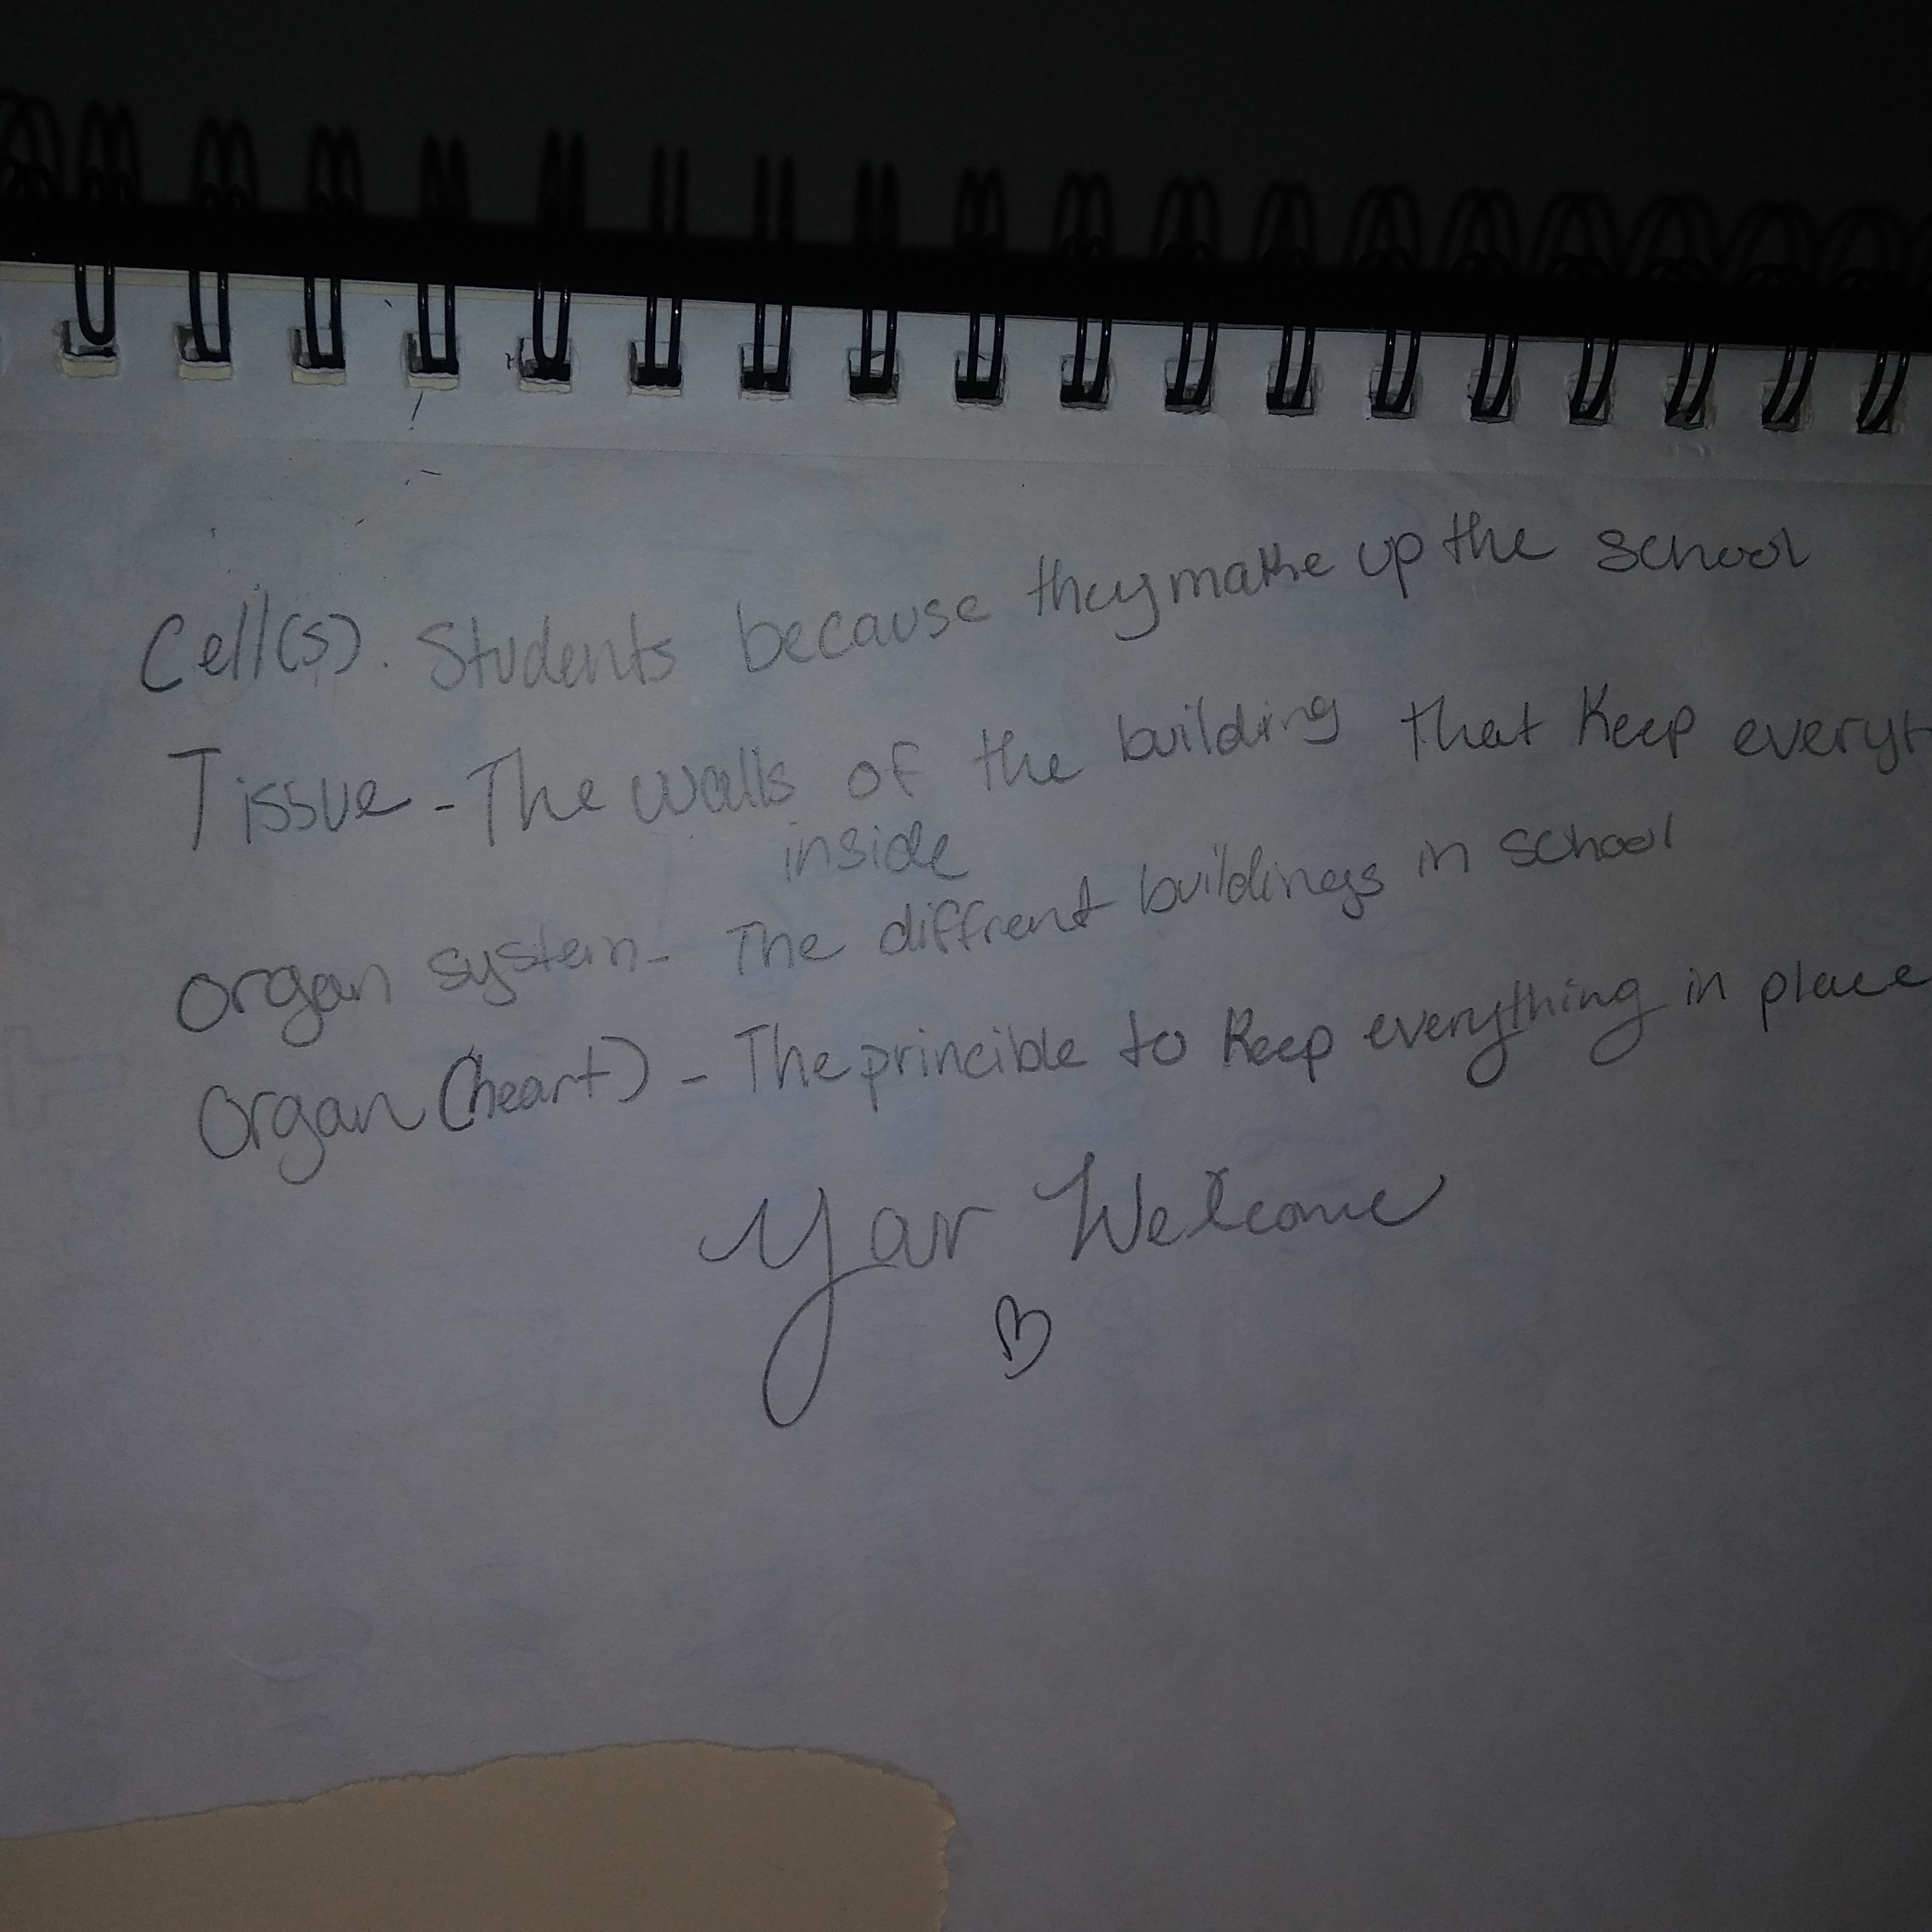 Cell(s). Students because they make up the school
Tissue - The walls of the building that keep everyt
inside
organ system - The diffrent buildings in school
Organ (heart) - The princible to keep everything in place
Your Welcome